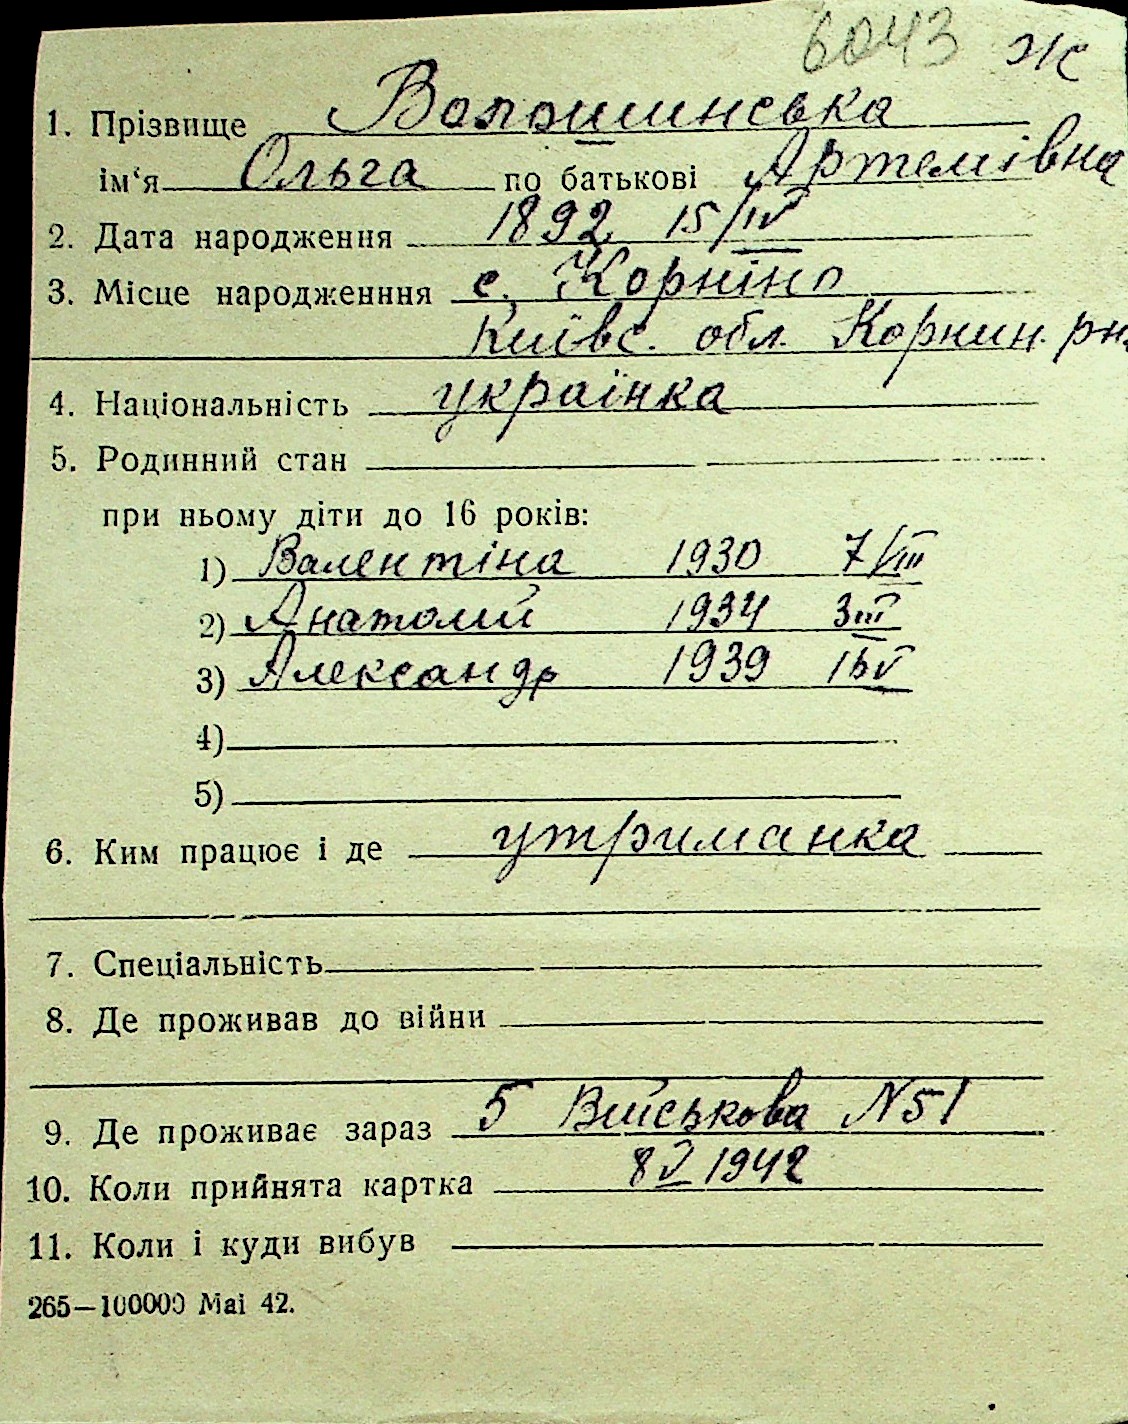 6043 Ж
1. Прізвище Волошинська
ім‘я Ольга по батькові Артемівна
2. Дата народження 1892 15/IV
3. Місце народженння с. Корніно
Київс. обл. Корнин. рн.
4. Національність українка
5. Родинний стан
при ньому діти до 16 років:
1) Валентіна 1930 7/VIII
2) Анатолий 1934 3 III
3) Александр 1939 16 V
4)
5)
6. Ким працює і де утриманка
7. Спеціальність
8. Де проживав до війни
9. Де проживає зараз 5 Військова N 51
10. Коли прийнята картка 8 V 1942
11. Коли і куди вибув
265—100000 Mai 42.